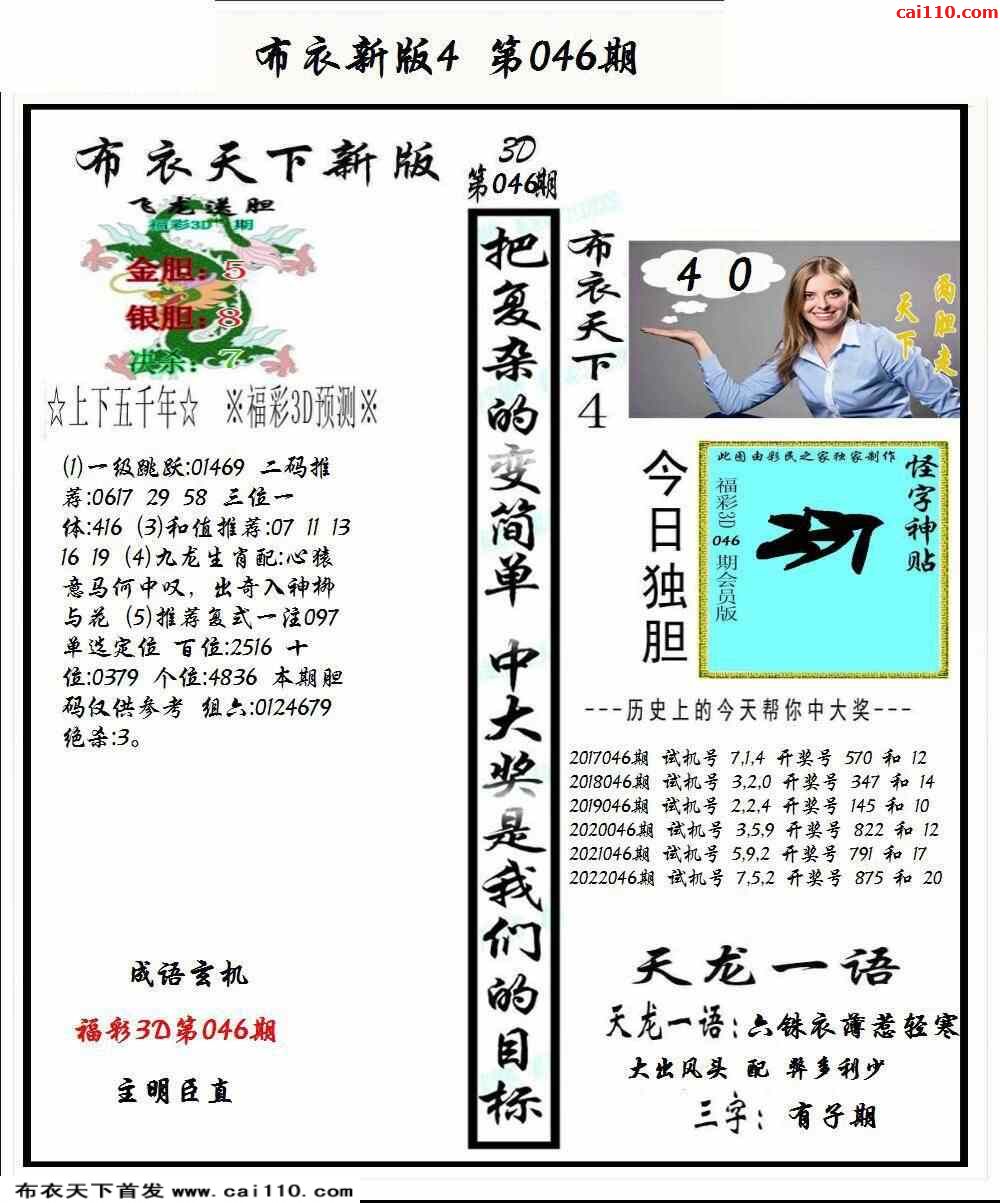 cai110.com
布衣新版4 第046期
布衣天下新版
飞龙送胆
福彩3D 期
金胆：5
银胆：8
决杀：7
☆上下五千年☆ ※福彩3D预测※
(1)一级跳跃:01469 二码推
荐:0617 29 58 三位一
体:416 (3)和值推荐:07 11 13
16 19 (4)九龙生肖配:心猿
意马何中叹，出奇入神柳
与花 (5)推荐复式一注097
单选定位 百位:2516 十
位:0379 个位:4836 本期胆
码仅供参考 组六:0124679
绝杀:3。
成语玄机
福彩3D第046期
主明臣直
3D
第046期
把复杂的变简单 中大奖是我们的目标
布衣天下4
4 0
两胆走
天下
今日独胆
此图由彩民之家独家制作
怪字神贴
福彩3D 046 期会员版
---历史上的今天帮你中大奖---
2017046期 试机号 7,1,4 开奖号 570 和 12
2018046期 试机号 3,2,0 开奖号 347 和 14
2019046期 试机号 2,2,4 开奖号 145 和 10
2020046期 试机号 3,5,9 开奖号 822 和 12
2021046期 试机号 5,9,2 开奖号 791 和 17
2022046期 试机号 7,5,2 开奖号 875 和 20
天龙一语
天龙一语：六铢衣薄惹轻寒
大出风头 配 弊多利少
三字： 有子期
布衣天下首发 www.cai110.com